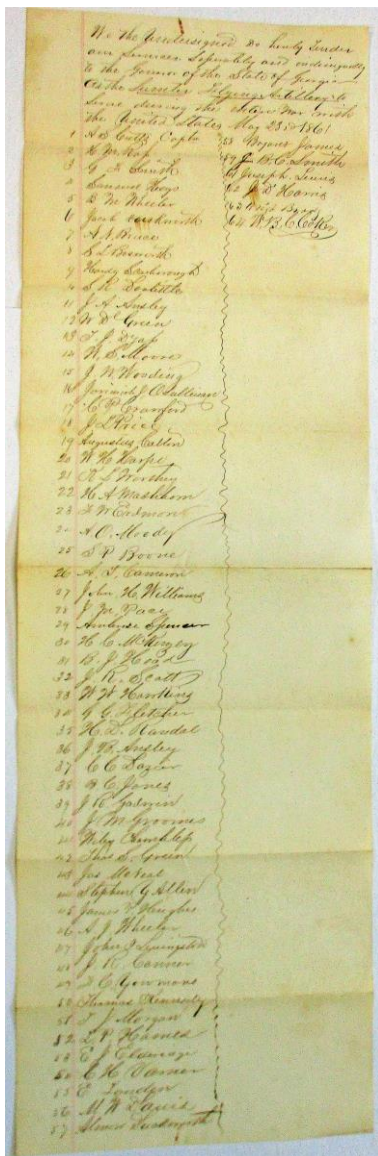 We the Undersigned do hereby Tender
our Services Separately and
to the Governor of the State of Georgia
as the Sumter Flying Artillery to
Serve during the War with
the United States May 23rd 1861
1 A S Cutts Captn
2 H M
3 G Smith
4 Samuel Hays
5 B M Wheeler
6 Jacob Duckworth
7 A J Bruce
8 S L Bosworth
9 Handy Scarborough
10 S R
11 J A Ansley
12 W D Green
13 T J
14 W S Moore
15 J N Wooding
16 Jeremiah J O Sullivan
17 C P Crawford
18 J L Price
19 Augustus Catton
20 W H Harpe
21 R S Worthy
22 H A Washborn
23 T W Edmond
24 A O. Moody
25 S P Boone
26 A J Cameron
27 John H. Williams
28 J M Pace
29 Ambrose Spencer
30 H C McKinzey
31 B J Head
32 J. R. Scott
33 W W Hawkins
34 G G Fletcher
35 H D. Randal
36 J B Ansley
37 C C Dozier
38 C Jones
39 J R Gadwin
40 J M Groomes
41 Wiley
42 C. Green
43 Jas McNeal
44 Stephen G Allen
45 James Hughes
46 A J Wheeler
47 John J Livingston
48 J R Conner
49 C Yeomans
50 Thomas Kennedy
51 T J Morgan
52 L P Hames
53 E J Eldridge
54 E H Varner
55 E London
56 M W Davis
57 Duckworth
58 James
59 J B C Smith
60 Joseph Lewis
62 J D Harris
63 Byrd
64 W B. C Coker